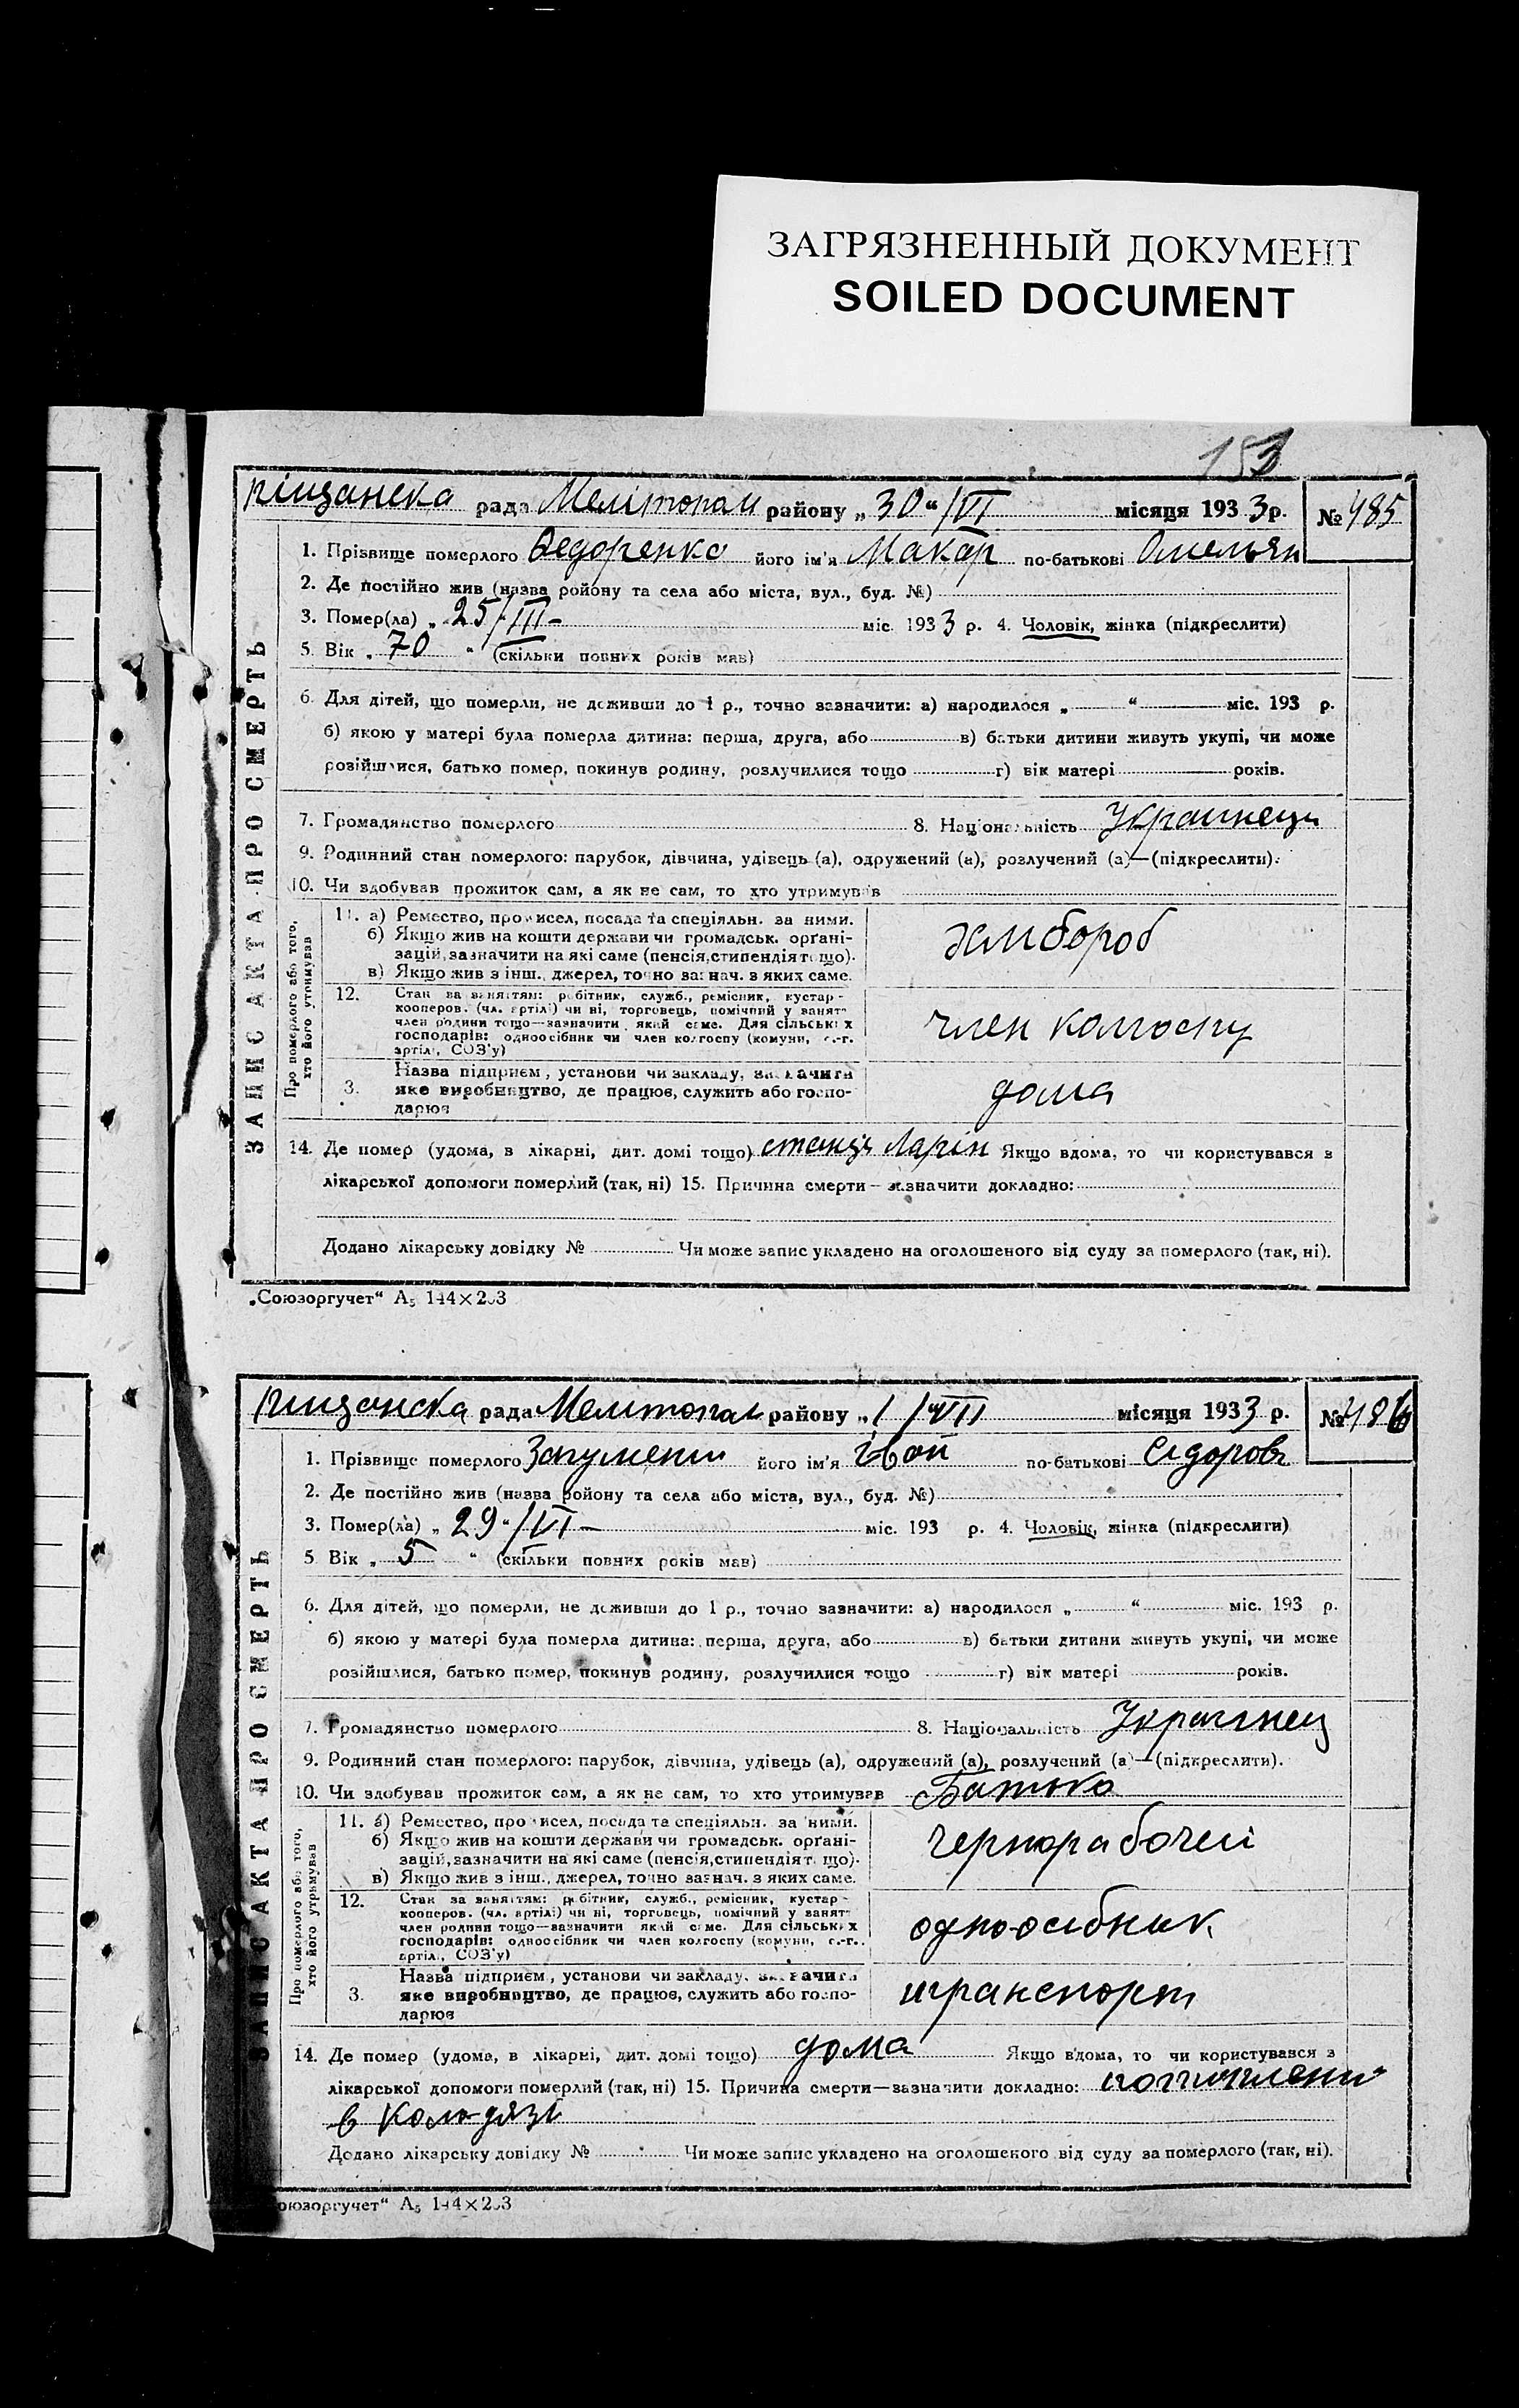 ЗАГРЯЗНЕННЫЙ ДОКУМЕНТ
SOILED DOCUMENT
Піщанска рада Мелітопол району „30“/VI місяця 1933 р. № 485
1. Прізвище померлого Федоренко його ім'я Макар по-батькові Омельян
2. Де постійно жив (назва ройону та села або міста, вул., буд. №)
3. Помер(ла) „25“/III- міс. 1933 р. 4. Чоловік, жінка (підкреслити)
5. Вік „70“ (скільки повних років мав)
6. Для дітей, що померли, не доживши до 1 р., точно зазначити: а) народилося „ “ міс. 193 р.
б) якою у матері була померла дитина: перша, друга, або в) батьки дитини живуть укупі, чи може
розійшлися, батько помер, покинув родину, розлучилися тощо г) вік матері років.
7. Громадянство померлого 8. Національність Украинець
9. Родинний стан померлого: парубок, дівчина, удівець (а), одружений (а), розлучений (а)—(підкреслити).
10. Чи здобував прожиток сам, а як не сам, то хто утримував
ЗАПИС АКТА ПРО СМЕРТЬ
Про померлого або того,
хто його утримував
11. а) Ремество, промисел, посада та спеціяльн. за ними.
б) Якщо жив на кошти держави чи громадськ. орґані-
зацій, зазначити на які саме (пенсія, стипендія тощо).
в) Якщо жив з інш. джерел, точно зазнач. з яких саме.
12. Стан за заняттям: робітник, служб., ремісник, кустар-
кооперов. (чл. артілі) чи ні, торговець, помічний у занят-
член родини тощо—зазначити який саме. Для сільських
господарів: одноосібник чи член колгоспу (комуни, с.-г.
артілі, СОЗ'у)
член колгоспу
3. Назва підприєм., установи чи закладу, зазначити
яке виробництво, де працює, служить або госпо-
дарює
дома
14. Де помер (удома, в лікарні, дит. домі тощо) Якщо вдома, то чи користувався з
лікарської допомоги померлий (так, ні) 15. Причина смерти—зазначити докладно:
Додано лікарську довідку № Чи може запис укладено на оголошеного від суду за померлого (так, ні).
„Союзоргучет“ А5 144×203
Пищанска рада Мелітопол району „1“/VII місяця 1933 р. № 486
1. Прізвище померлого його ім'я по-батькові Сідоров
2. Де постійно жив (назва ройону та села або міста, вул., буд. №)
3. Помер(ла) „29“/VI- міс. 193 р. 4. Чоловік, жінка (підкреслити)
5. Вік „5“ (скільки повних років мав)
6. Для дітей, що померли, не доживши до 1 р., точно зазначити: а) народилося „ “ міс. 193 р.
б) якою у матері була померла дитина: перша, друга, або в) батьки дитини живуть укупі, чи може
розійшлися, батько помер, покинув родину, розлучилися тощо г) вік матері років.
7. Громадянство померлого 8. Національність Украинец
9. Родинний стан померлого: парубок, дівчина, удівець (а), одружений (а), розлучений (а)—(підкреслити).
10. Чи здобував прожиток сам, а як не сам, то хто утримував Батько
ЗАПИС АКТА ПРО СМЕРТЬ
Про померлого або того,
хто його утримував
11. а) Ремество, промисел, посада та спеціяльн. за ними.
б) Якщо жив на кошти держави чи громадськ. орґані-
зацій, зазначити на які саме (пенсія, стипендія тощо).
в) Якщо жив з інш. джерел, точно зазнач. з яких саме.
чернорабочеи
12. Стан за заняттям: робітник, служб., ремісник, кустар-
кооперов. (чл. артілі) чи ні, торговець, помічний у занят-
член родини тощо—зазначити який саме. Для сільських
господарів: одноосібник чи член колгоспу (комуни, с.-г.
артілі, СОЗ'у)
одноосібник
3. Назва підприєм., установи чи закладу, зазначити
яке виробництво, де працює, служить або госпо-
дарює
транспорт
14. Де помер (удома, в лікарні, дит. домі тощо) дома Якщо вдома, то чи користувався з
лікарської допомоги померлий (так, ні) 15. Причина смерти—зазначити докладно:
в колодязі
Додано лікарську довідку № Чи може запис укладено на оголошеного від суду за померлого (так, ні).
оюзоргучет“ А5 144×203